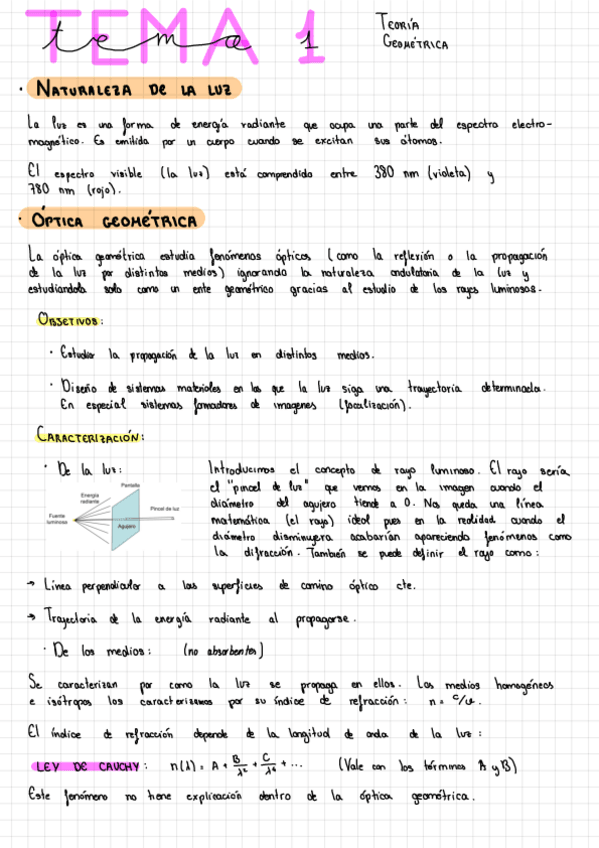 TEMA 1
tema 1
TEORÍA
GEOMÉTRICA
· NATURALEZA DE LA LUZ
La luz es una forma de energía radiante que ocupa una parte del espectro electro-
magnético. Es emitida por un cuerpo cuando se excitan sus átomos.
El espectro visible (la luz) está comprendido entre 380 nm (violeta) y
780 nm (rojo).
· ÓPTICA GEOMÉTRICA
La óptica geométrica estudia fenómenos ópticos (como la reflexión o la propagación
de la luz por distintos medios) ignorando la naturaleza ondulatoria de la luz y
estudiándola solo como un ente geométrico gracias al estudio de los rayos luminosos.
OBJETIVOS:
· Estudiar la propagación de la luz en distintos medios.
· Diseño de sistemas materiales en los que la luz siga una trayectoria determinada.
En especial sistemas formadores de imagenes (focalización).
CARACTERIZACIÓN:
· De la luz:
Pantalla
Energía
radiante
Pincel de luz
Fuente
luminosa
Agujero
Introducimos el concepto de rayo luminoso. El rayo sería
el "pincel de luz" que vemos en la imagen cuando el
diámetro del agujero tiende a 0. Nos queda una línea
matemática (el rayo) ideal pues en la realidad cuando el
diámetro disminuyera acabarían apareciendo fenómenos como
la difracción. También se puede definir el rayo como:
→ Línea perpendicular a las superficies de camino óptico cte.
→ Trayectoria de la energía radiante al propagarse.
· De los medios: (no absorbentes)
Se caracterizan por como la luz se propaga en ellos. Los medios homogéneos
e isótropos los caracterizamos por su índice de refracción: n = c/v.
El índice de refracción depende de la longitud de onda de la luz:
LEY DE CAUCHY: n(λ) = A + B/λ² + C/λ⁴ + ... (Vale con los términos A y B)
Este fenómeno no tiene explicación dentro de la óptica geométrica.